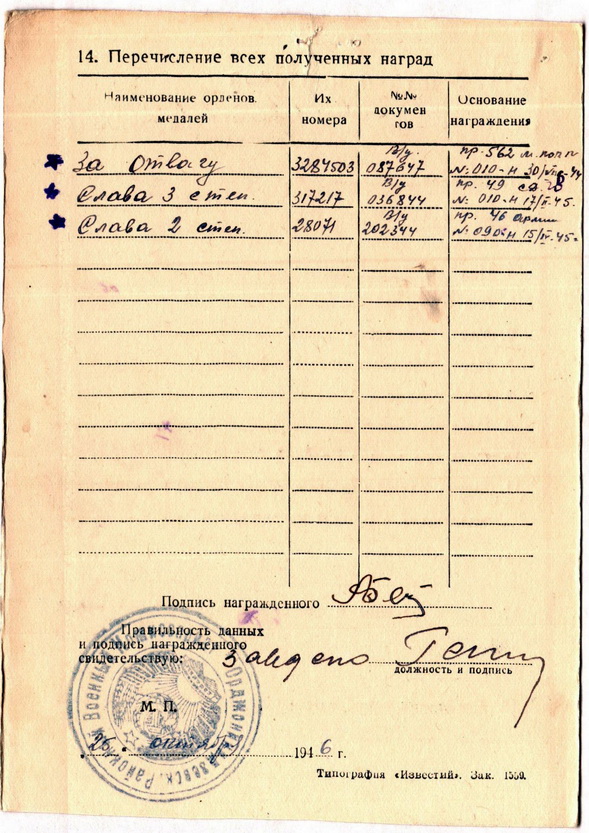 14. Перечисление всех полученных наград
Наименование орденов медалей
Их номера
№№ документов
Основание награждения
За отвагу 3284503 В/у. 087647 пр. 562 м. полп
Слава 3 степ. 317217 В/у 036844 пр. 49
N: 010-Н 17/II-45.
Слава 2 степ. 28071 В/у 202344 пр. 46 армии
15/IV-45г
Подпись награжденного
Правильность данных
и подпись награжденного
свидетельствую:
должность и подпись
М. П.
26 октяб 1946 г.
Типография «Известий». Зак. 1559.